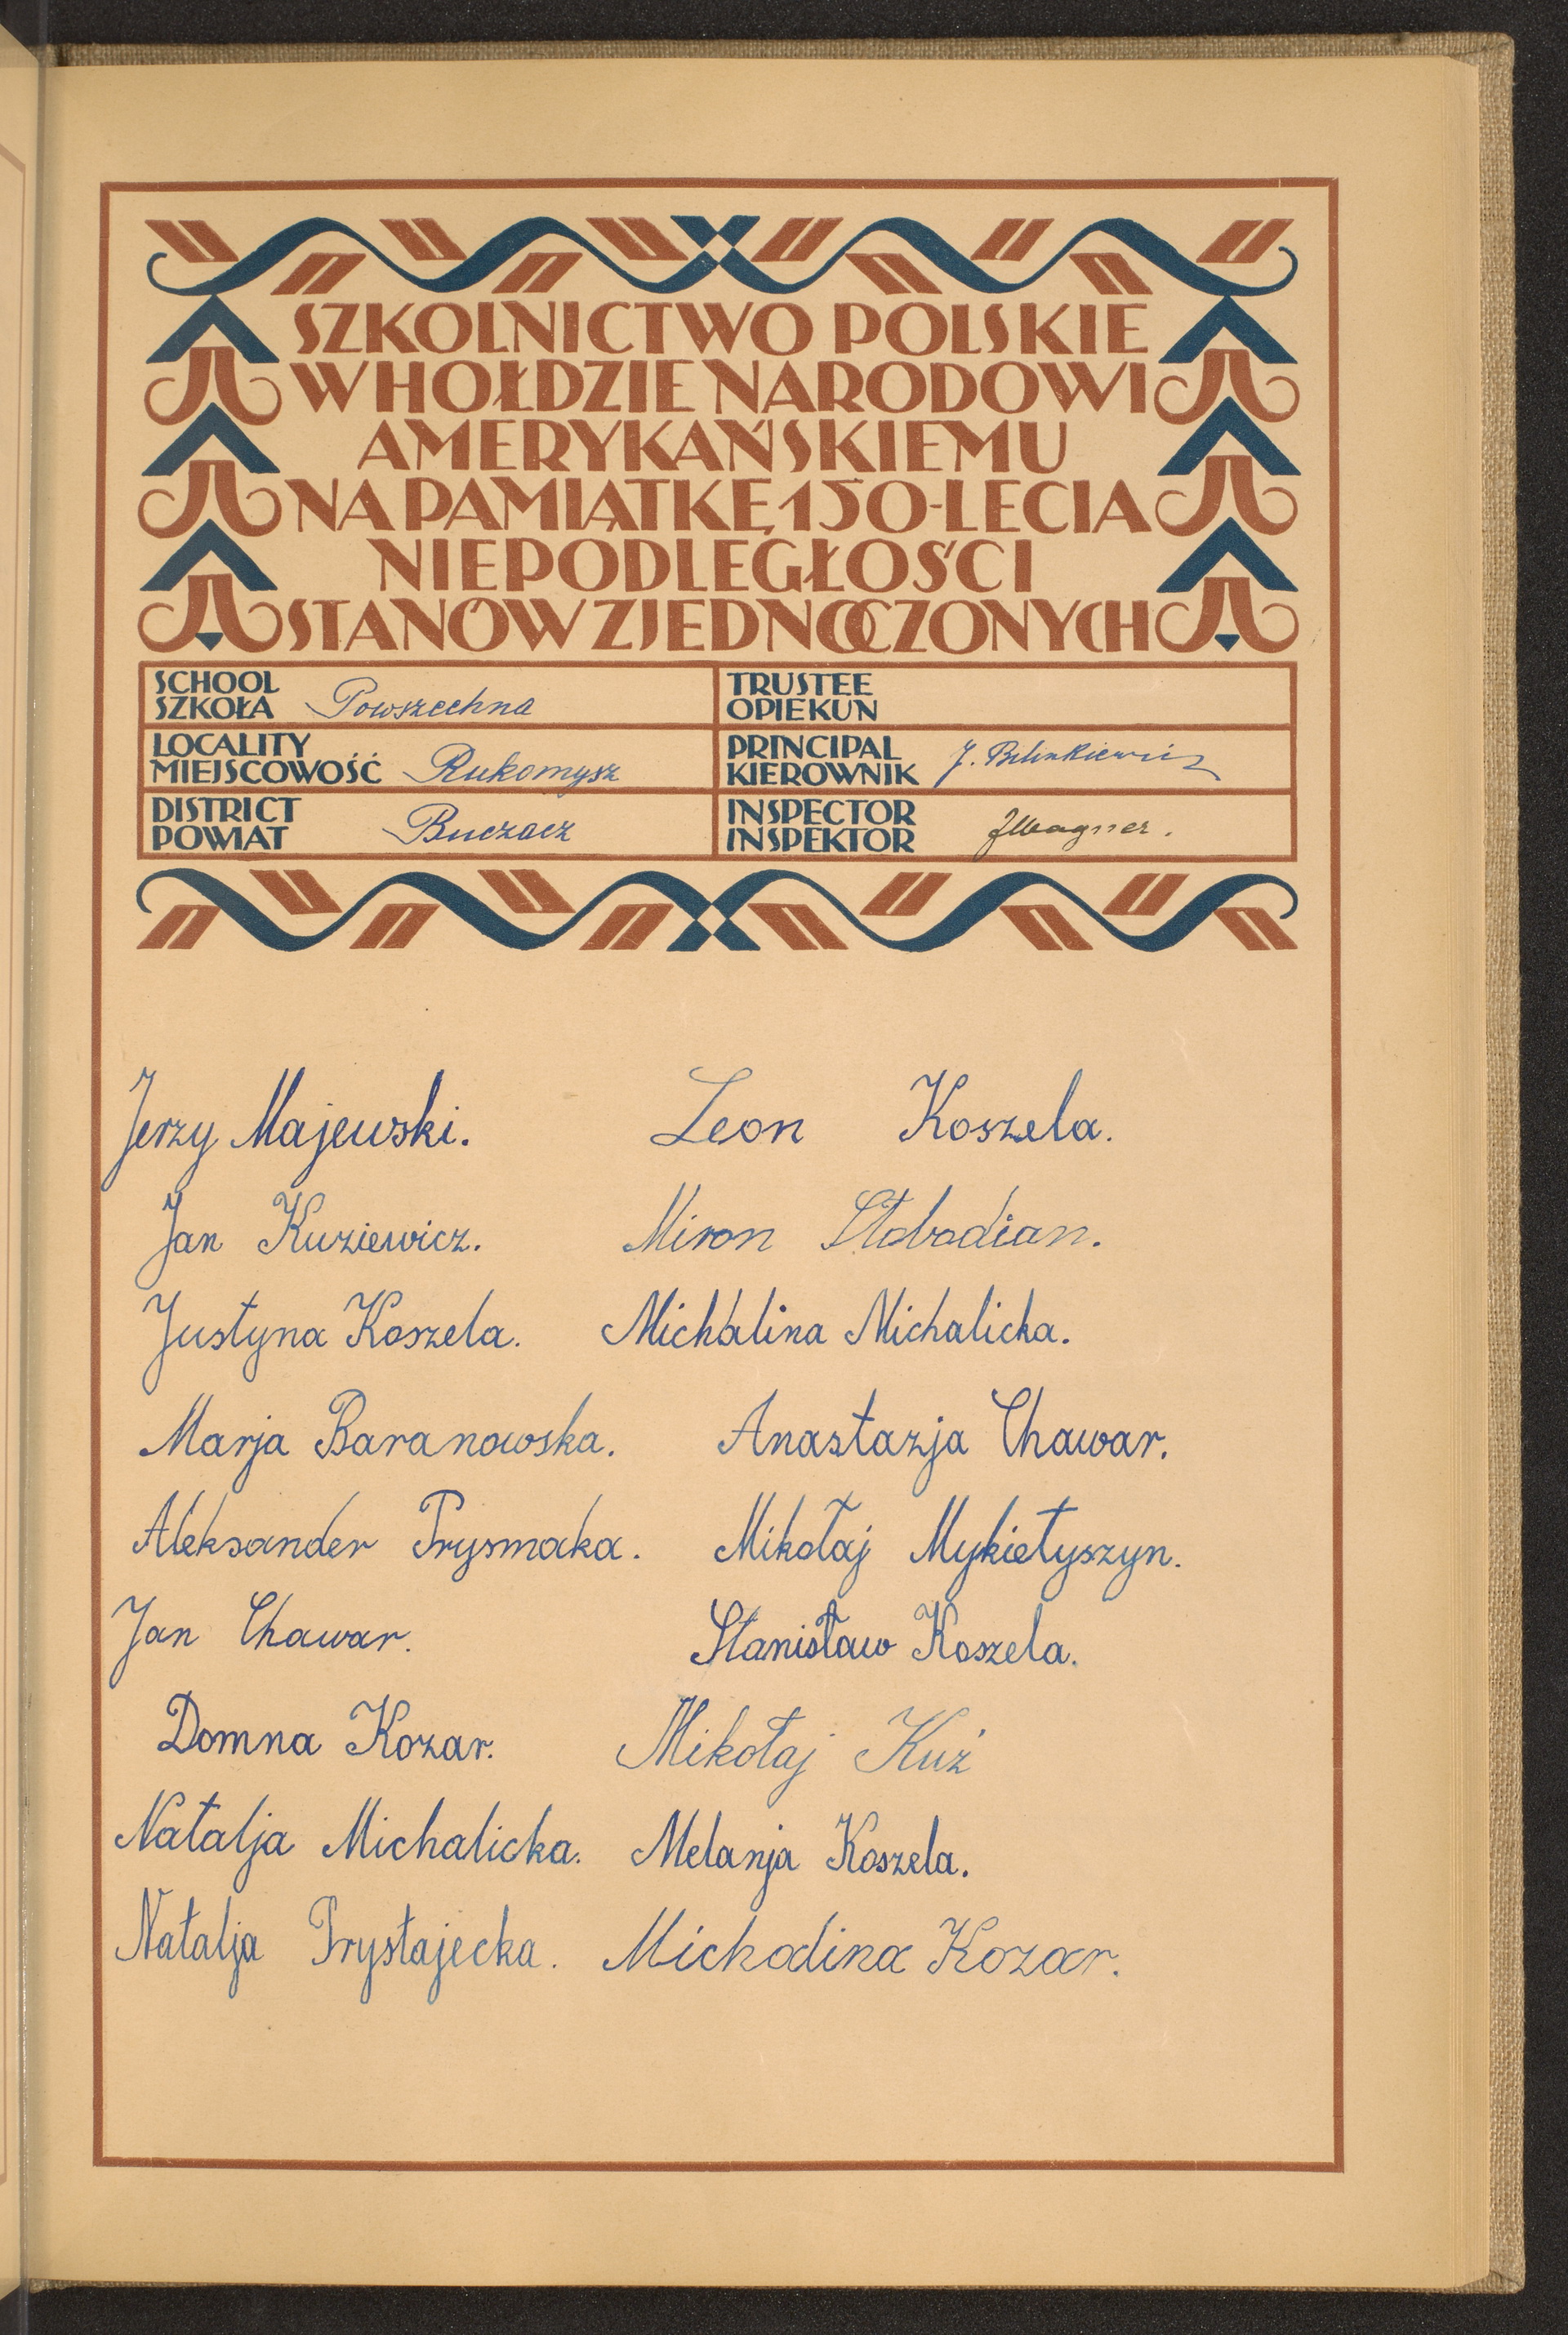 SZKOLNICTWO POLSKIE
W HOŁDZIE NARODOWI
AMERYKAŃSKIEMU
NA PAMIĄTKĘ 150-LECIA
NIEPODLEGŁOŚCI
STANÓW ZJEDNOCZONYCH
SCHOOL
SZKOŁA Powszechna
TRUSTEE
OPIEKUN
LOCALITY
MIEJSCOWOŚĆ Rukomysz
PRINCIPAL
KIEROWNIK J.
DISTRICT
POWIAT Buczacz
INSPECTOR
INSPEKTOR JWagner.
Jerzy Majewski. Leon Koszela.
Jan Kuziewicz. Miron Słobodian.
Justyna Koszela. Michalina Michalicka.
Marja Baranowska. Anastazja Chawar.
Aleksander Prysmaka. Mikołaj Mykietyszyn.
Jan Chawar. Stanisław Koszela.
Domna Kozar. Mikołaj Kuź
Natalja Michalicka. Melanja Koszela.
Natalja Prystajecka. Michalina Kozar.